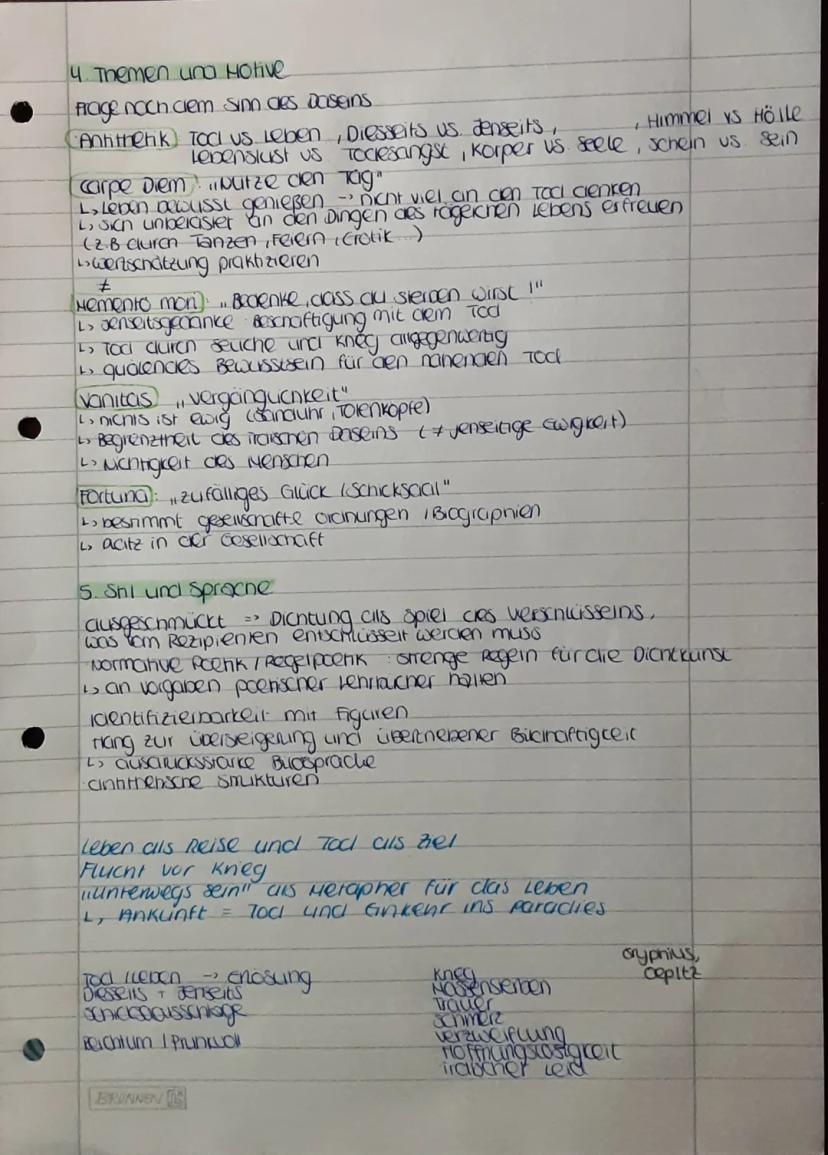 4. Themen und Motive
Frage nach dem Sinn des Daseins
Antithetik Tod vs Leben, Diesseits vs. Jenseits, , Himmel vs Hölle
Lebenslust vs Todesangst, Körper vs. Seele, Schein vs. Sein
Carpe Diem: „Nutze den Tag"
↳ Leben bewusst genießen → nicht viel an den Tod denken
↳ sich unbelastet an den Dingen des täglichen Lebens erfreuen
(z.B durch Tanzen, Feiern, Erotik...)
↳ Wertschätzung praktizieren
≠
Memento mori: „Bedenke, dass du sterben wirst!"
↳ Jenseitsgedanke Beschäftigung mit dem Tod
↳ Tod durch Seuche und Krieg allgegenwertig
↳ quälendes Bewusstsein für den nahenden Tod
Vanitas „Vergänglichkeit"
↳ nichts ist ewig (Sanduhr, Totenköpfe)
↳ Begrenztheit des irdischen Daseins (≠ jenseitige Ewigkeit)
↳ Nichtigkeit des Menschen
Fortuna: „zufälliges Glück / Schicksaal"
↳ bestimmt gesellschafte Ordnungen / Biographien
↳ in der Gesellschaft
5. Stil und Sprache
ausgeschmückt => Dichtung als Spiel des Verschlüsselns,
was vom Rezipienten entschlüsselt werden muss
Normative Poetik / Regelpoetik: strenge Regeln für die Dichtkunst
↳ an Vorgaben poetischer Lehrbücher halten
Identifizierbarkeit mit Figuren
Hang zur Übersteigerung und übertriebener Bildhaftigkeit
↳ ausdrucksstarke Bildsprache
antithetische Strukturen
Leben als Reise und Tod als Ziel
Flucht vor Krieg
„Unterwegs sein" als Metapher für das Leben
↳ Ankunft = Tod und Einkehr ins Paradies
Gryphius,
Opitz
Tod / Leben → Erlösung
Diesseits + Jenseits
Schicksalsschläge
Reichtum / Prunkvoll
Krieg
Massensterben
Trauer
Schmerz
Verzweiflung
Hoffnungslosigkeit
irdischer Leid
BRUNNEN